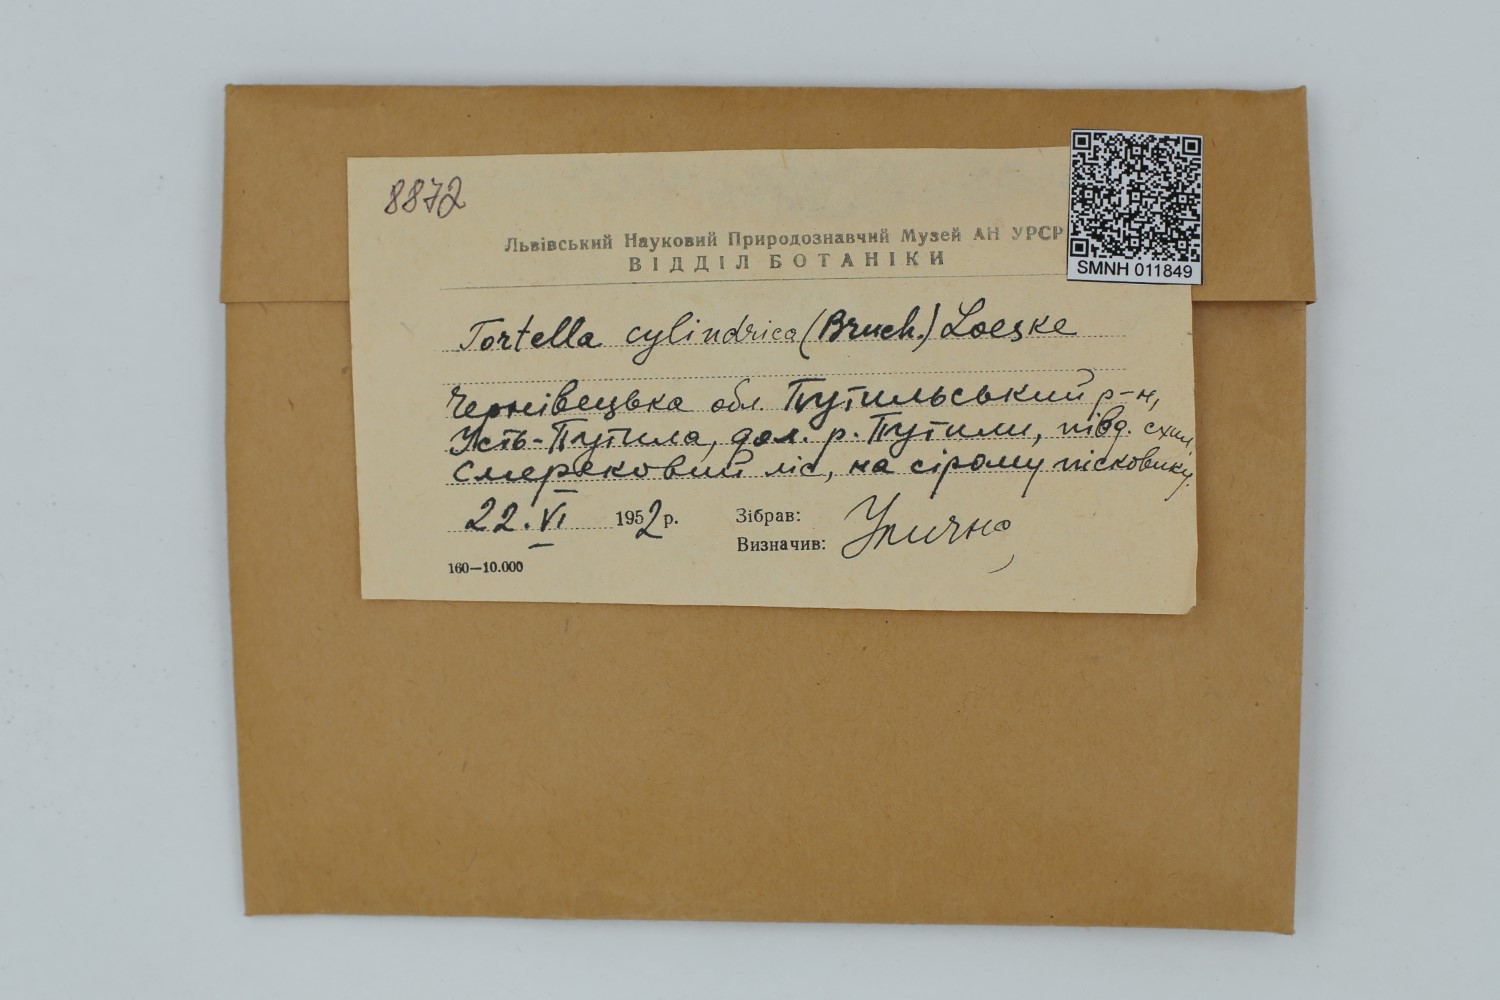 8872
Львівський Науковий Природознавчий Музей АН УРСР
ВІДДІЛ БОТАНІКИ
SMNH 011849
Tortella cylindrica (Bruch.) Loeske
Чернівецька обл. Путильський р-н,
Усть-Путила, дол. р. Путили, півд. схил,
Смерековий ліс, на сірому пісковику.
22.VI 1952 р.
Зібрав:
Визначив: Улична
160—10.000